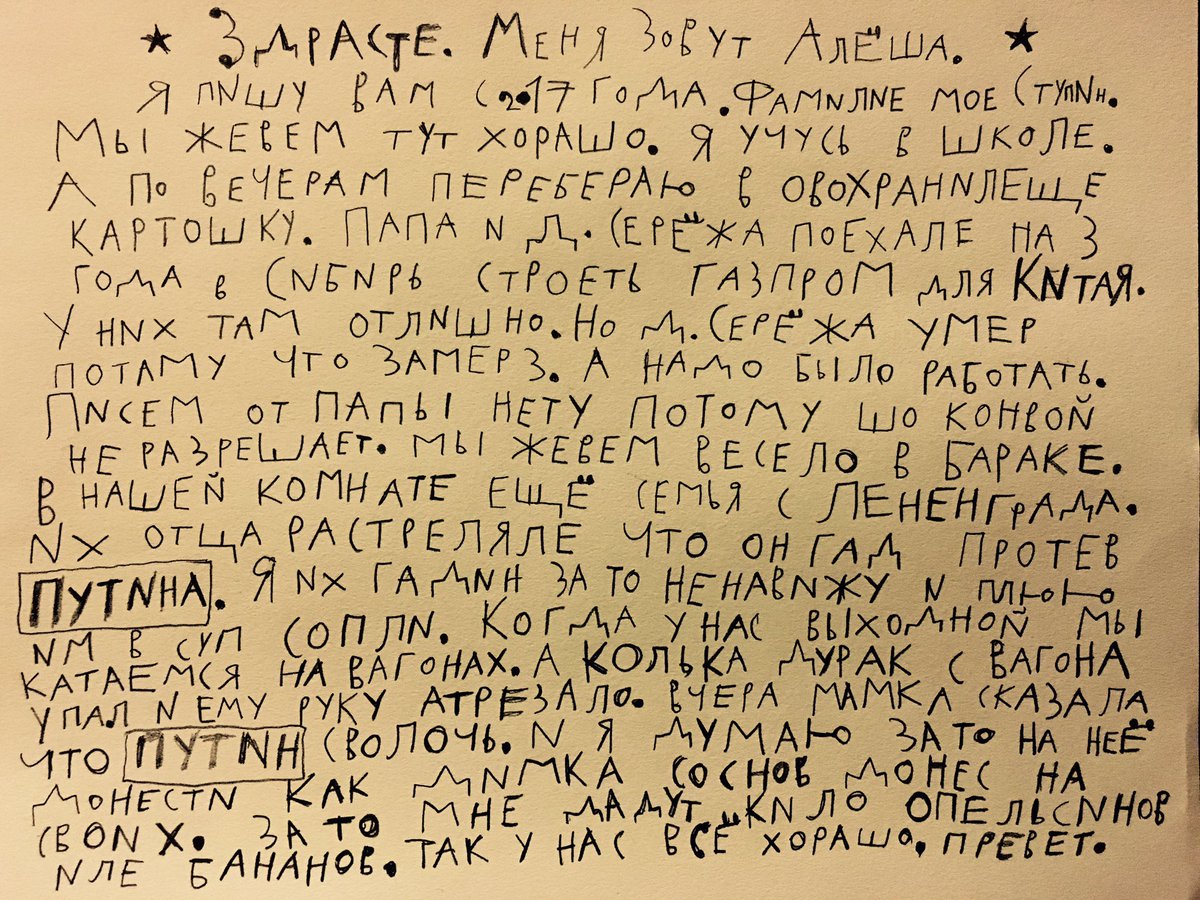 ★ Здрасте. Меня зовут Алёша. ★
Я пишу вам с 2.17 года. Фамилие мое Ступин.
Мы жевем тут хорашо. Я учусь в школе.
А по вечерам перебераю в овохранилеще
картошку. Папа и д. Серёжа поехале на 3
года в Сибирь строеть газпром для Китая.
У них там отлишно. Но д. Серёжа умер
потаму что замерз. А надо было работать.
Писем от папы нету потому шо конвой
не разрешает. Мы жевем весело в бараке.
В нашей комнате ещё семья с Лененграда.
Их отца растреляле что он гад протев
Путина. Я их гадин за то ненавижу и плюю
им в суп сопли. Когда у нас выходной мы
катаемся на вагонах. А Колька дурак с вагона
упал и ему руку атрезало. Вчера мамка сказала
что Путин сволочь. И я думаю зато на неё
донести как Димка Соснов донес на
своих. За то мне дадут кило опельсинов
иле бананов. Так у нас всё хорашо. Превет.